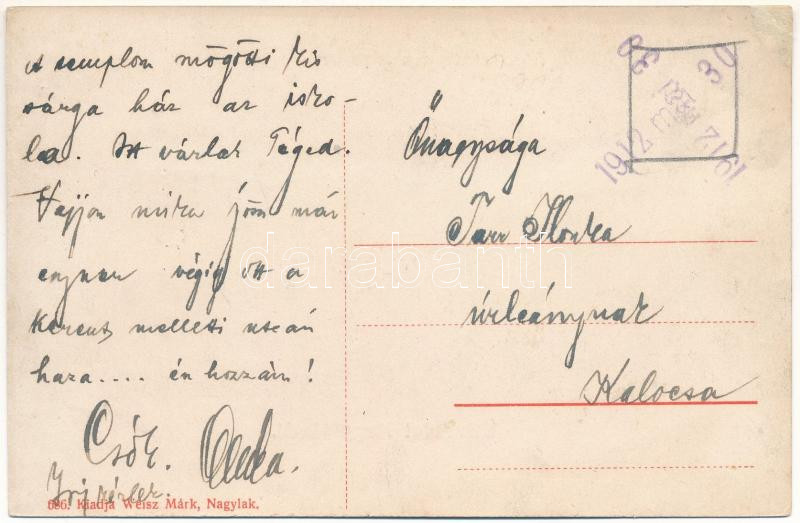 A templom mögötti kis
sárga ház az isko-
la. Itt várlak Téged.
Vajjon mikor jösz már
végig itt a
kereszt melletti utcán
haza.... én hozzám!
Csók.
Irj kérlek.
686. Kiadja Weisz Márk, Nagylak.
Őnagysága
Tarr Ilonka
úrleánynak
Kalocsa
1912
1912
30
darabanth